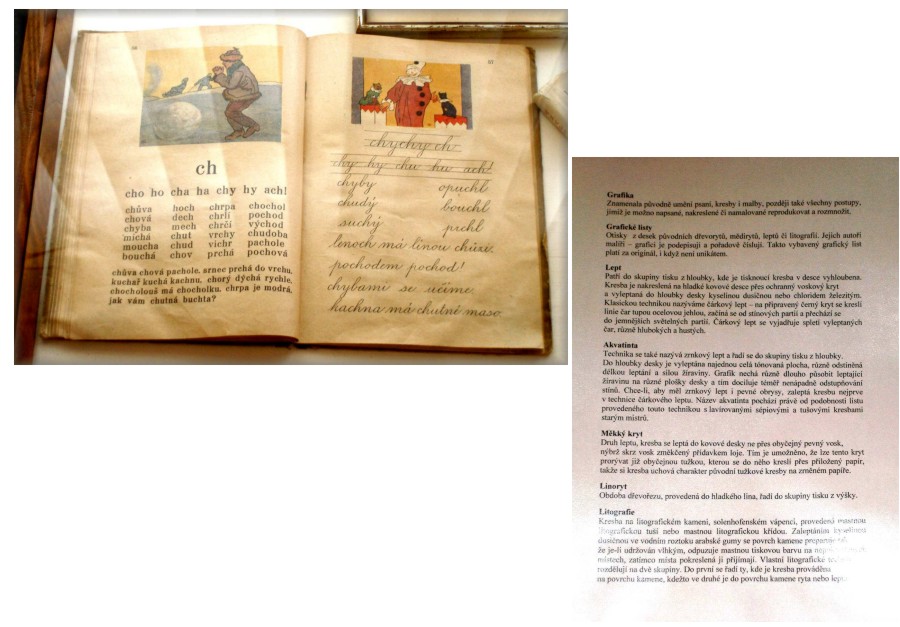 ch
cho ho cha ha chy hy ach!
chůva hoch chrpa chochol
chová dech chrlí pochod
chyba mech chrčí východ
míchá chut vrchy chudoba
moucha chud vichr pachole
bouchá chov prchá pochová
chůva chová pachole. srnec prchá do vrchu.
kuchař kuchá kachnu. chorý dýchá rychle.
chocholouš má chocholku. chrpa je modrá.
jak vám chutná buchta?
57
chychy ch
chy hy chu hu ach!
chyby opuchl
chudý bouchl
suchý prchl
lenoch má línou chůzi.
pochodem pochod!
chybami se učíme.
kachna má chutné maso.
Grafika
Znamenala původně umění psaní, kresby i malby, později také všechny postupy,
jimiž je možno napsané, nakreslené či namalované reprodukovat a rozmnožit.
Grafické listy
Otisky z desek původních dřevorytů, mědirytů, leptů či litografií. Jejich autoři
malíři – grafici je podepisují a pořadově číslují. Takto vybavený grafický list
platí za originál, i když není unikátem.
Lept
Patří do skupiny tisku z hloubky, kde je tisknoucí kresba v desce vyhloubena.
Kresba je nakreslená na hladké kovové desce přes ochranný voskový kryt
a vyleptaná do hloubky desky kyselinou dusičnou nebo chloridem železitým.
Klasickou technikou nazýváme čárkový lept – na připravený černý kryt se kreslí
linie čar tupou ocelovou jehlou, začíná se od stínových partií a přechází se
do jemnějších světelných partií. Čárkový lept se vyjadřuje spletí vyleptaných
čar, různě hlubokých a hustých.
Akvatinta
Technika se také nazývá zrnkový lept a řadí se do skupiny tisku z hloubky.
Do hloubky desky je vyleptána najednou celá tónovaná plocha, různě odstíněná
délkou leptání a silou žíraviny. Grafik nechá různě dlouho působit leptající
žíravinu na různé plošky desky a tím dociluje téměř nenápadně odstupňování
stínů. Chce-li, aby měl zrnkový lept i pevné obrysy, zaleptá kresbu nejprve
v technice čárkového leptu. Název akvatinta pochází právě od podobnosti listu
provedeného touto technikou s lavírovanými sépiovými a tušovými kresbami
starým mistrů.
Měkký kryt
Druh leptu, kresba se leptá do kovové desky ne přes obyčejný pevný vosk,
nýbrž skrz vosk změkčený přídavkem loje. Tím je umožněno, že lze tento kryt
prorývat již obyčejnou tužkou, kterou se do něho kreslí přes přiložený papír,
takže si kresba uchová charakter původní tužkové kresby na zrněném papíře.
Linoryt
Obdoba dřevořezu, provedená do hladkého lina, řadí do skupiny tisku z výšky.
Litografie
Kresba na litografickém kameni, solenhofenském vápenci, provedená mastnou
litografickou tuší nebo mastnou litografickou křídou. Zaleptáním kyselinou
dusičnou ve vodním roztoku arabské gumy se povrch kamene
že je-li udržován vlhkým, odpuzuje mastnou tiskovou barvu na
místech, zatímco místa pokreslená ji přijímají. Vlastní litografické
rozdělují na dvě skupiny. Do první se řadí ty, kde je kresba prováděna
na povrchu kamene, kdežto ve druhé je do povrchu kamene ryta nebo